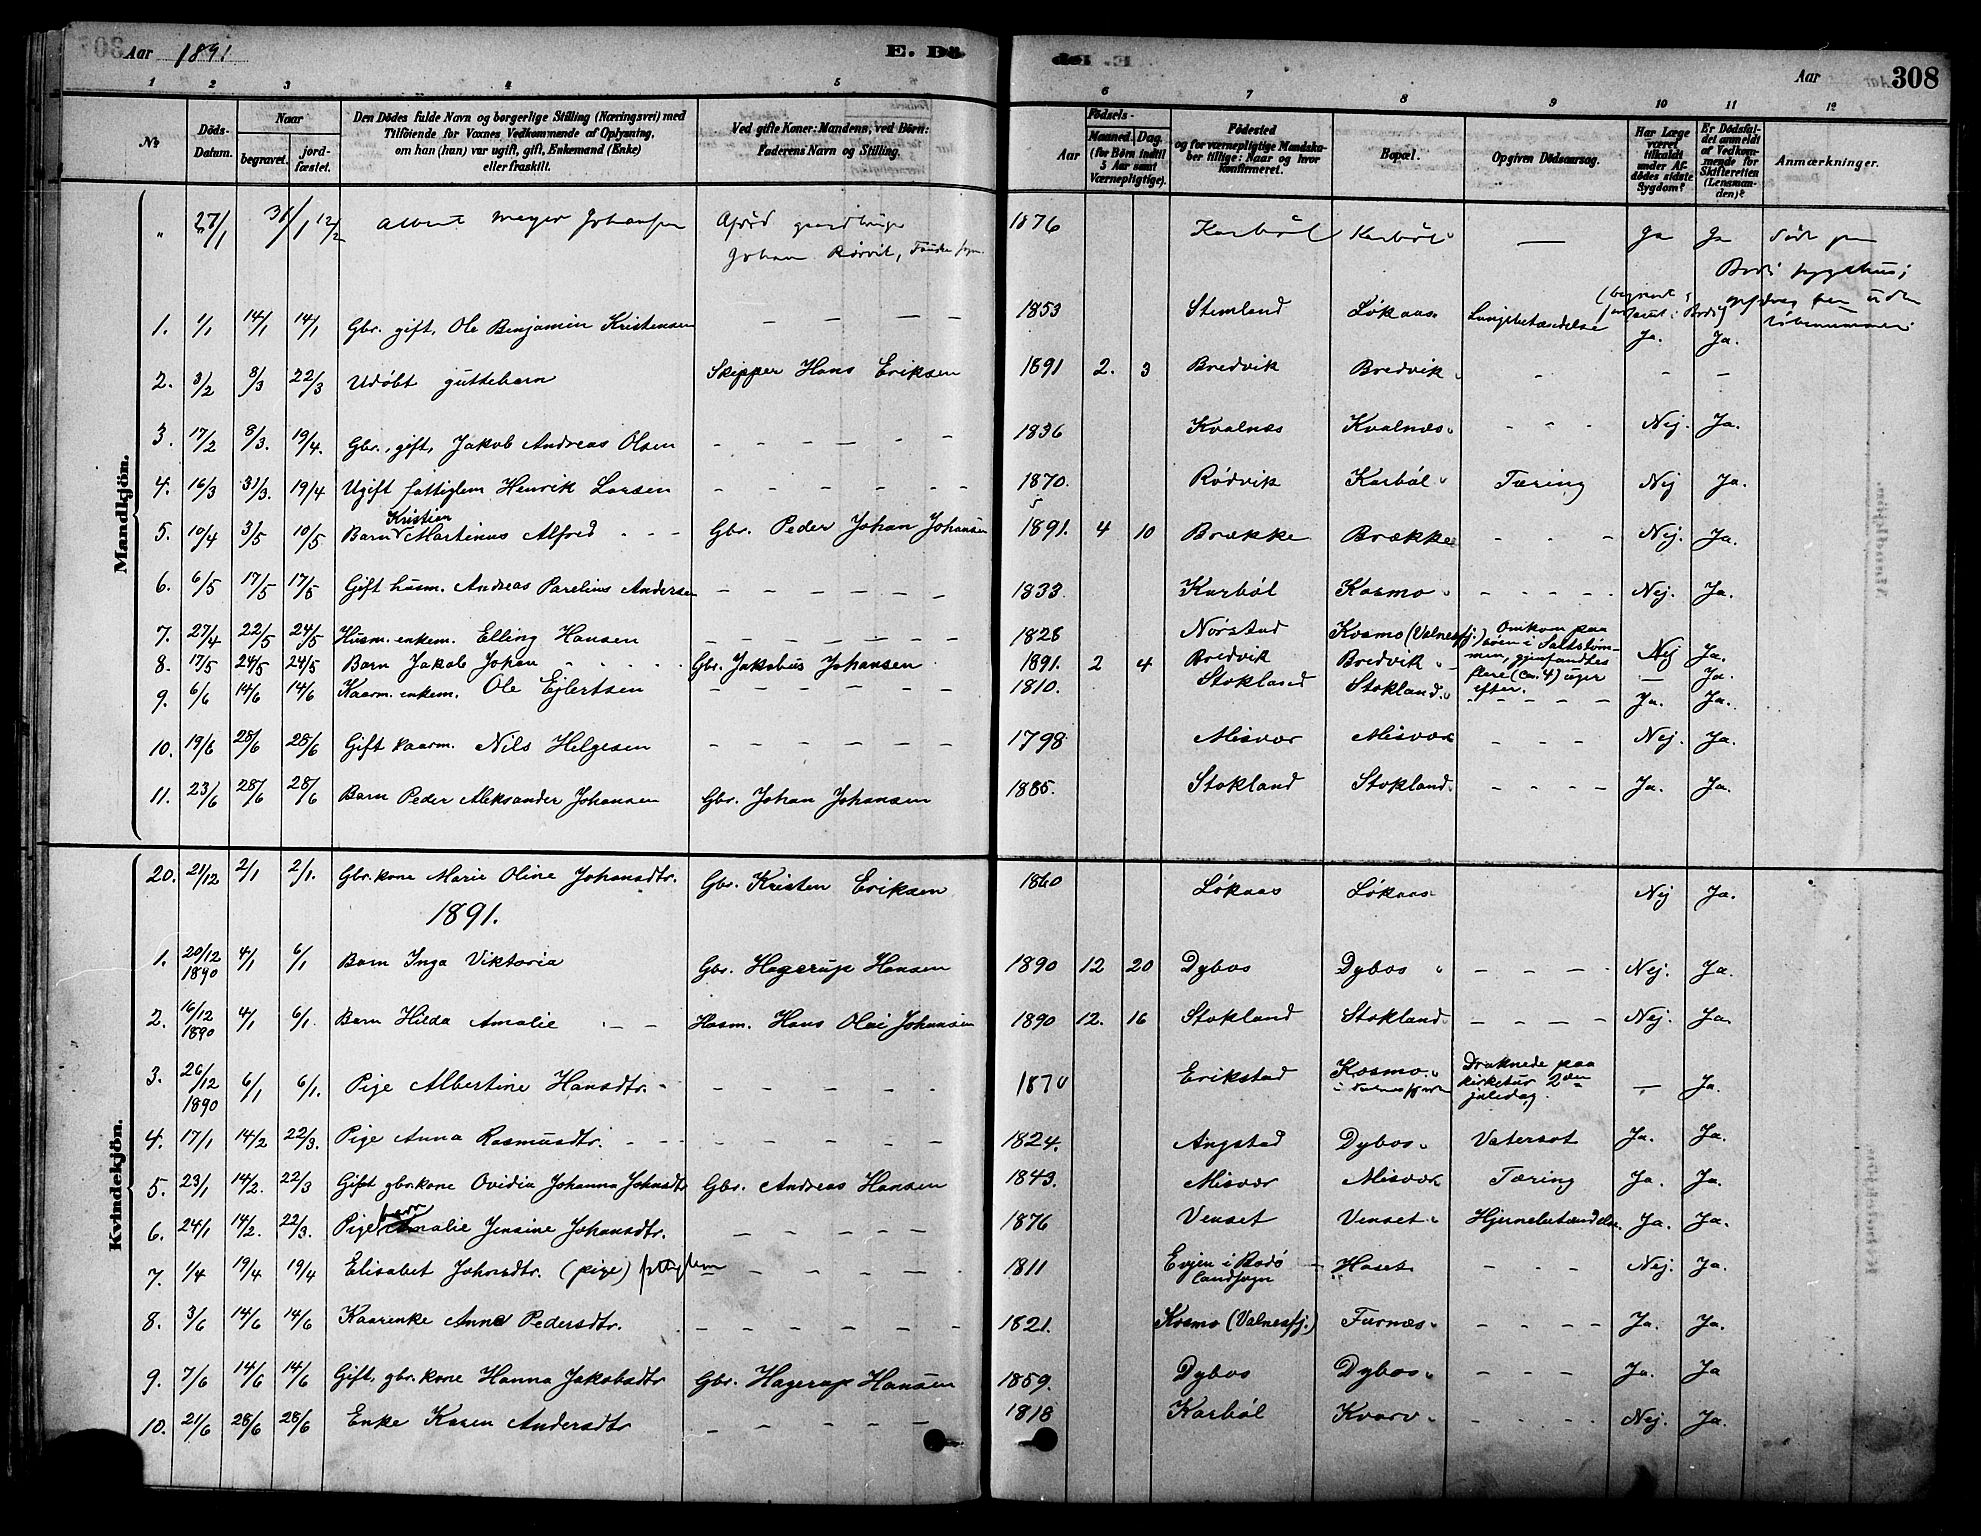 Aar 1891. E. Dö
E. Dö Aar 308
1 2 3 4 5 6 7 8 9 10 11 12
№ Döds-Datum. Naar begravet. jord-fæstet. Den Dödes fulde Navn og borgerlige Stilling (Næringsvei) med Tilföiende for Voxnes Vedkommende af Oplysning, om han (hun) var ugift, gift, Enkemand (Enke) eller fraskilt. Ved gifte Koner: Mandens, ved Börn: Faderens Navn og Stilling. Födsels- Aar Maaned. Dag. (for Börn indtil 5 Aar samt Værnepligtige). Födested og for værnepligtige Mandskaber tillige: Naar og hvor Konfirmeret. Bopæl. Opgiven Dödsaarsag. Har Læge været tilkaldt under Afdödes sidste Sygdom? Er Dödsfaldet anmeldt af Vedkommende for Skifteretten (Lensmanden)? Anmærkninger.
Mandkjön.
" 27/1 31/1 12/2 Albert Meyer Johansen Johan Rörvik, 1876 Karböl Karböl — Ja Ja
1. 1/1 14/1 14/1 Gbr. gift, Ole Benjamin Kristensen — — — 1853 Stemland Løkaas Lungebetændelse Ja. Ja.
2. 3/2 8/3 22/3 Udöbt guttebarn Skipper Hans Eriksen 1891 2. 3 Bredvik Bredvik - - -
3. 17/2 8/3. 19/4. Gbr., gift, Jakob Andreas Olsen — — — 1836 Kvalnæs Kvalnæs - - - Nej. Ja.
4. 16/3 31/3. 19/4 Ugift fattiglem Henrik Larsen — — — 1870. Rödvik Karböl Tæring Nej Ja.
5. 10/4 3/5 10/5 Barn Kristian Martinus Alfred - - - Gbr. Peder Johan Johansen 1891. 4 10 Brække Brække - - - Nej. Ja.
6. 6/5 17/5 17/5 Gift husm. Andreas Parelius Andersen — — — 1833. Karböl Kosmo - - - Nej. Ja.
7. 27/4 22/5 24/5 Husm. enkem. Elling Hansen — — — 1828 Nørstad Kosmo (Valnesfj.) Omkom paa søen i Saltstømmen, gjenfandtes flere (ca. 4) uger efter. Nej Ja.
8. 17/5 24/5 24/5 Barn Jakob Johan - - - Gbr. Jakobus Johansen 1891. 2 4 Bredvik Bredvik - — Ja.
9. 6/6 14/6 14/6 Kaarm. enkem. Ole Ejlertsen — — — 1810. Stokland Stokland. - - - Ja. Ja.
10. 19/6 28/6 28/6 Gift kaarm. Nils Helgesen — — — 1798 Misvær Misvær - - - Nej. Ja.
11. 23/6 28/6 28/6 Barn Peder Aleksander Johansen Gbr. Johan Johansen 1885. Stokland Stokland - - - Ja. Ja.
Kvindekjön.
20. 21/12 2/1 2/1. Gbr. kone Marie Oline Johansdtr. Gbr. Kristen Eriksen 1860 Løkaas Løkaas Nej Ja.
1891.
1. 20/12 1890 4/1 6/1 Barn Inga Viktoria Gbr. Hagerup Hansen 1890 12 20 Dybos Dybos - - - Nej. Ja.
2. 16/12 1890 4/1 6/1. Barn Hilda Amalie - - - Husm. Hans Olai Johansen 1890 12. 16 Stokland Stokland - - - Nej. Ja.
3. 26/12 1890 6/1 6/1. Pige Albertine Hansdtr. 1870 Erikstad Kosmo i Valnesfjorden Druknede paa kirketur 2den juledag. — Ja.
4. 17/1 14/2 22/3. Pige Anna Rasmusdtr. - - - 1824. Angstad Dybos Vatersot Ja. Ja.
5. 23/1 14/2. 22/3 Gift gbr. kone Ovidia Johanna Johnsdtr Gbr. Andreas Hansen 1843. Misvær Misvær Tæring Ja. Ja.
6. 24/1 14/2. 22/3. Pigebarn Amalie Jensine Johansdtr. — — — 1876 Venset Venset Hjernebetændelse Ja. Ja.
7. 1/4 19/4 19/4 Elisabet Johnsdtr. (pige) fattiglem — — — 1811 Evjen i Bodø landsogn Haset - - - Nej. Ja.
8. 3/6 14/6 14/6 Kaarenke Anne Pedersdtr. — — — 1821. Kosmo (Valnesfj.) Furnæs - - - Ja. Ja.
9. 7/6 14/6 14/6 Gift, gbr. kone Hanna Jakobsdtr Gbr. Hagerup Hansen 1859. Dybos Dybos - - - Ja. Ja
10. 21/6 28/6 28/6 Enke Karen Andersdtr — — — 1818 Karböl Kvarv - - - Nej. Ja.